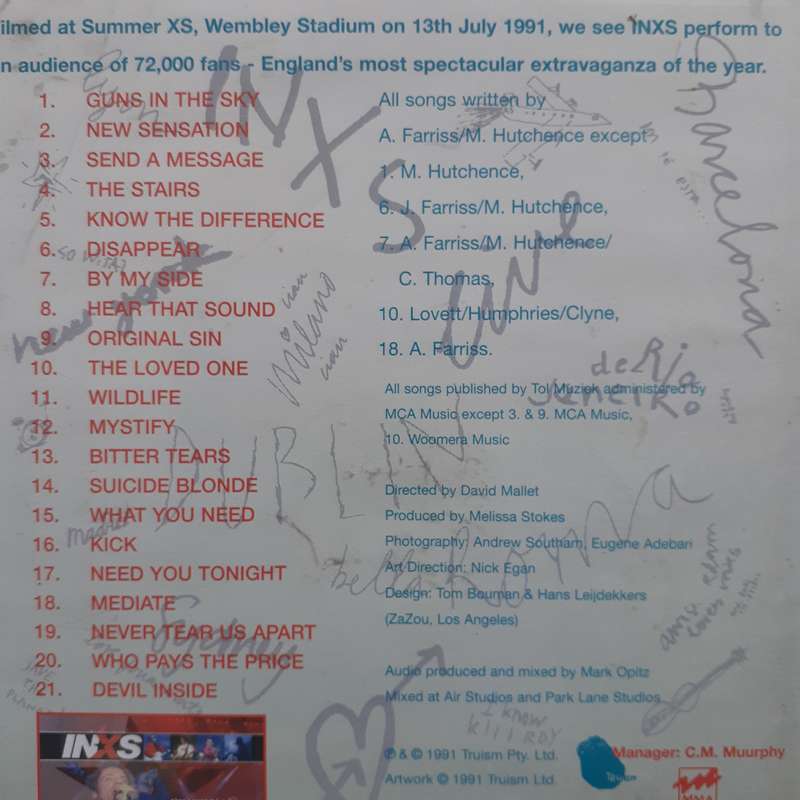 ilmed at Summer XS, Wembley Stadium on 13th July 1991, we see INXS perform to
n audience of 72,000 fans - England's most spectacular extravaganza of the year.
1. GUNS IN THE SKY
2. NEW SENSATION
3. SEND A MESSAGE
4. THE STAIRS
5. KNOW THE DIFFERENCE
6. DISAPPEAR
7. BY MY SIDE
8. HEAR THAT SOUND
9. ORIGINAL SIN
10. THE LOVED ONE
11. WILDLIFE
12. MYSTIFY
13. BITTER TEARS
14. SUICIDE BLONDE
15. WHAT YOU NEED
16. KICK
17. NEED YOU TONIGHT
18. MEDIATE
19. NEVER TEAR US APART
20. WHO PAYS THE PRICE
21. DEVIL INSIDE
All songs written by
A. Farriss/M. Hutchence except
1. M. Hutchence,
6. J. Farriss/M. Hutchence,
7. A. Farriss/M. Hutchence/
C. Thomas,
10. Lovett/Humphries/Clyne,
18. A. Farriss.
All songs published by Tol Muziek administered by
MCA Music except 3. & 9. MCA Music,
10. Woomera Music
Directed by David Mallet
Produced by Melissa Stokes
Photography: Andrew Southam, Eugene Adebari
Art Direction: Nick Egan
Design: Tom Bouman & Hans Leijdekkers
(ZaZou, Los Angeles)
Audio produced and mixed by Mark Opitz
Mixed at Air Studios and Park Lane Studios
℗ & © 1991 Truism Pty. Ltd.
Artwork © 1991 Truism Ltd.
Manager: C.M. Muurphy
Truism
MMA
INXS
INXS
Live
Barcelona
new york
milano
ciao
ciao
de Rio
Janeiro
DUBLIN
bella Roma
Sydney
I KNOW
KILLROY